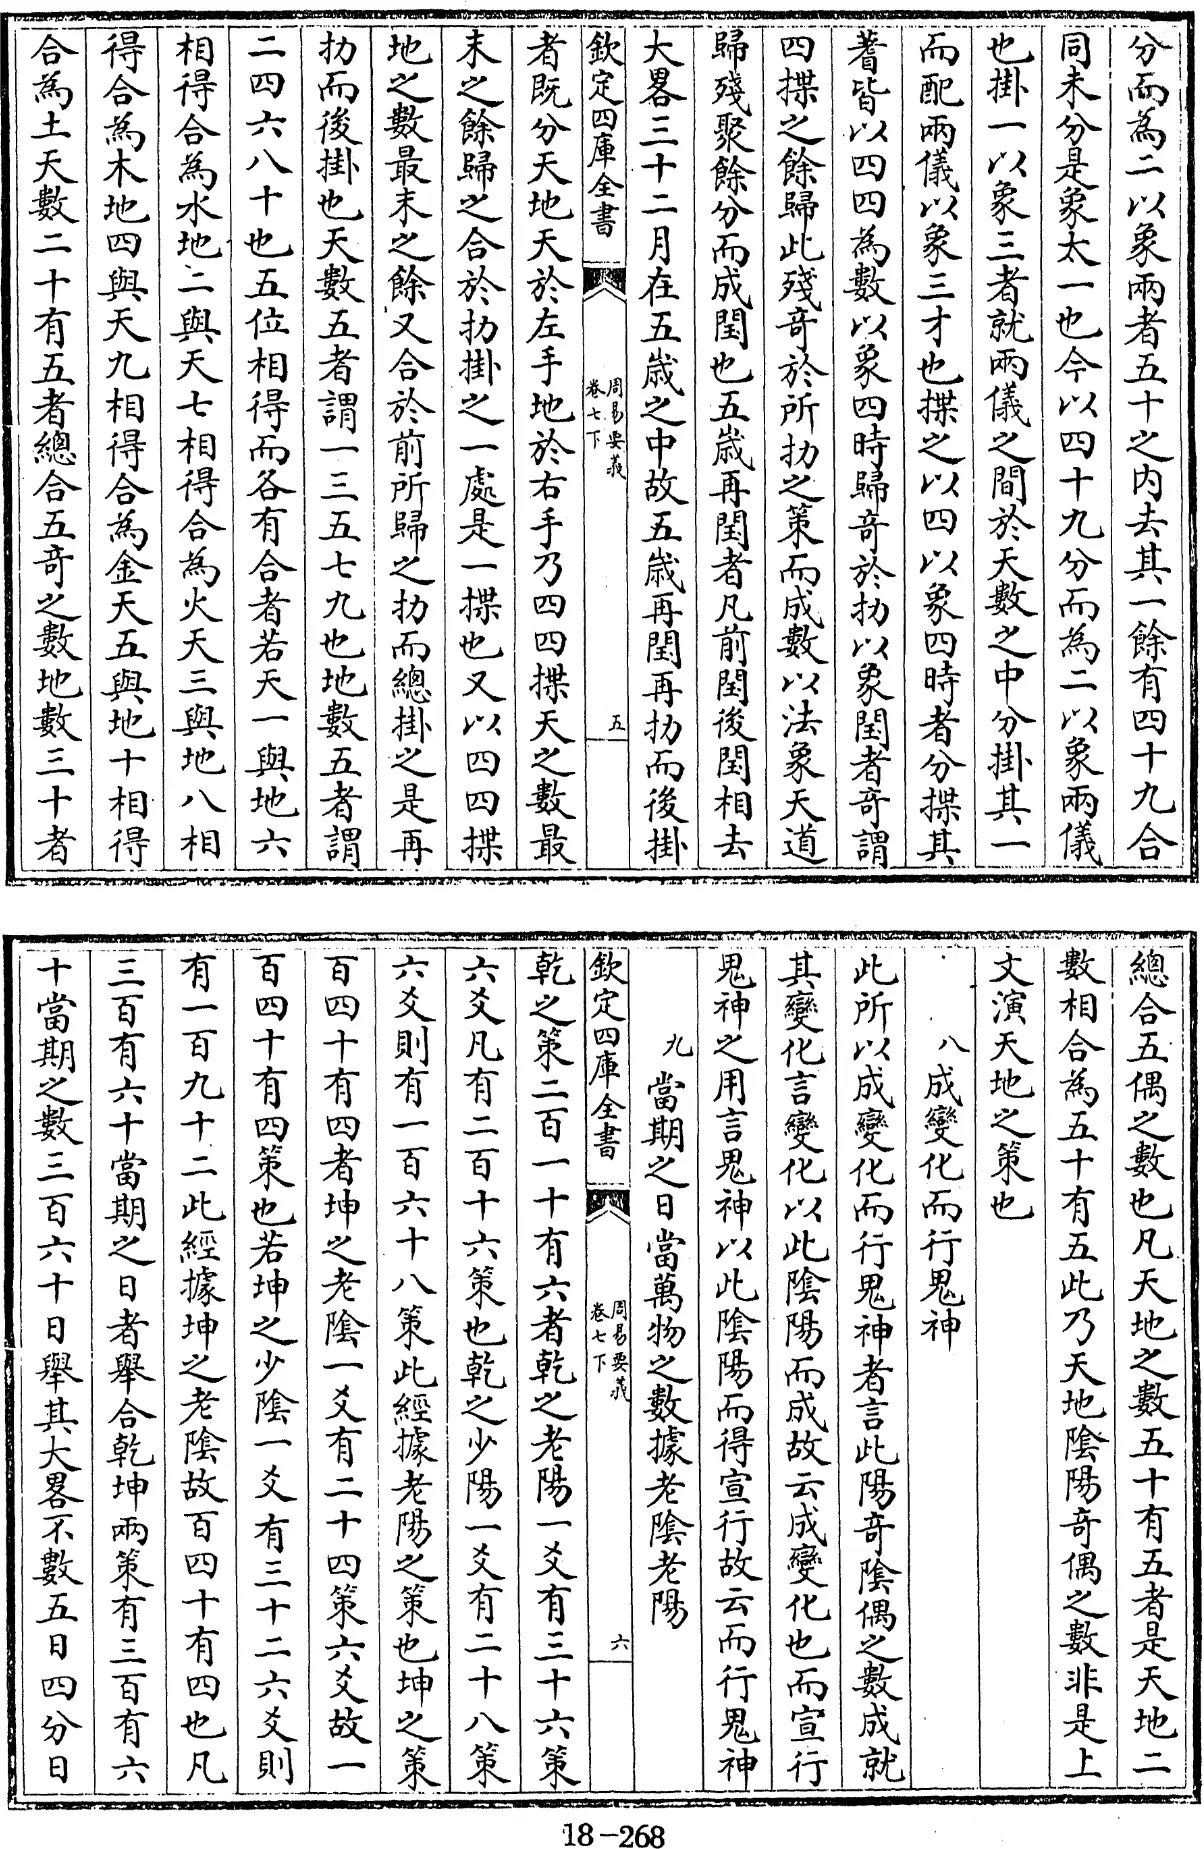 分而為二以象兩者五十之内去其一餘有四十九合
同未分是象太一也今以四十九分而為二以象兩儀
也掛一以象三者就兩儀之間於天數之中分掛其一
而配兩儀以象三才也揲之以四以象四時者分揲其
蓍皆以四四為數以象四時歸竒於扐以象閏者竒謂
四揲之餘歸此殘竒於所扐之策而成數以法象天道
歸殘聚餘分而成閏也五歳再閏者凡前閏後閏相去
大畧三十二月在五歳之中故五歳再閏再扐而後掛
欽定四庫全書
周易要義
卷七下
五
者既分天地天於左手地於右手乃四四揲天之數最
末之餘歸之合於扐掛之一處是一揲也又以四四揲
地之數最末之餘又合於前所歸之扐而總掛之是再
扐而後掛也天數五者謂一三五七九也地數五者謂
二四六八十也五位相得而各有合者若天一與地六
相得合為水地二與天七相得合為火天三與地八相
得合為木地四與天九相得合為金天五與地十相得
合為土天數二十有五者總合五竒之數地數三十者
總合五偶之數也凡天地之數五十有五者是天地二
數相合為五十有五此乃天地陰陽竒偶之數非是上
文演天地之策也
八成變化而行鬼神
此所以成變化而行鬼神者言此陽竒陰偶之數成就
其變化言變化以此陰陽而成故云成變化也而宣行
鬼神之用言鬼神以此陰陽而得宣行故云而行鬼神
九當期之日當萬物之數據老陰老陽
欽定四庫全書
周易要義
卷七下
六
乾之策二百一十有六者乾之老陽一爻有三十六策
六爻凡有二百十六策也乾之少陽一爻有二十八策
六爻則有一百六十八策此經據老陽之策也坤之策
百四十有四者坤之老陰一爻有二十四策六爻故一
百四十有四策也若坤之少陰一爻有三十二六爻則
有一百九十二此經據坤之老陰故百四十有四也凡
三百有六十當期之日者舉合乾坤兩策有三百有六
十當期之數三百六十日舉其大畧不數五日四分日
18-268